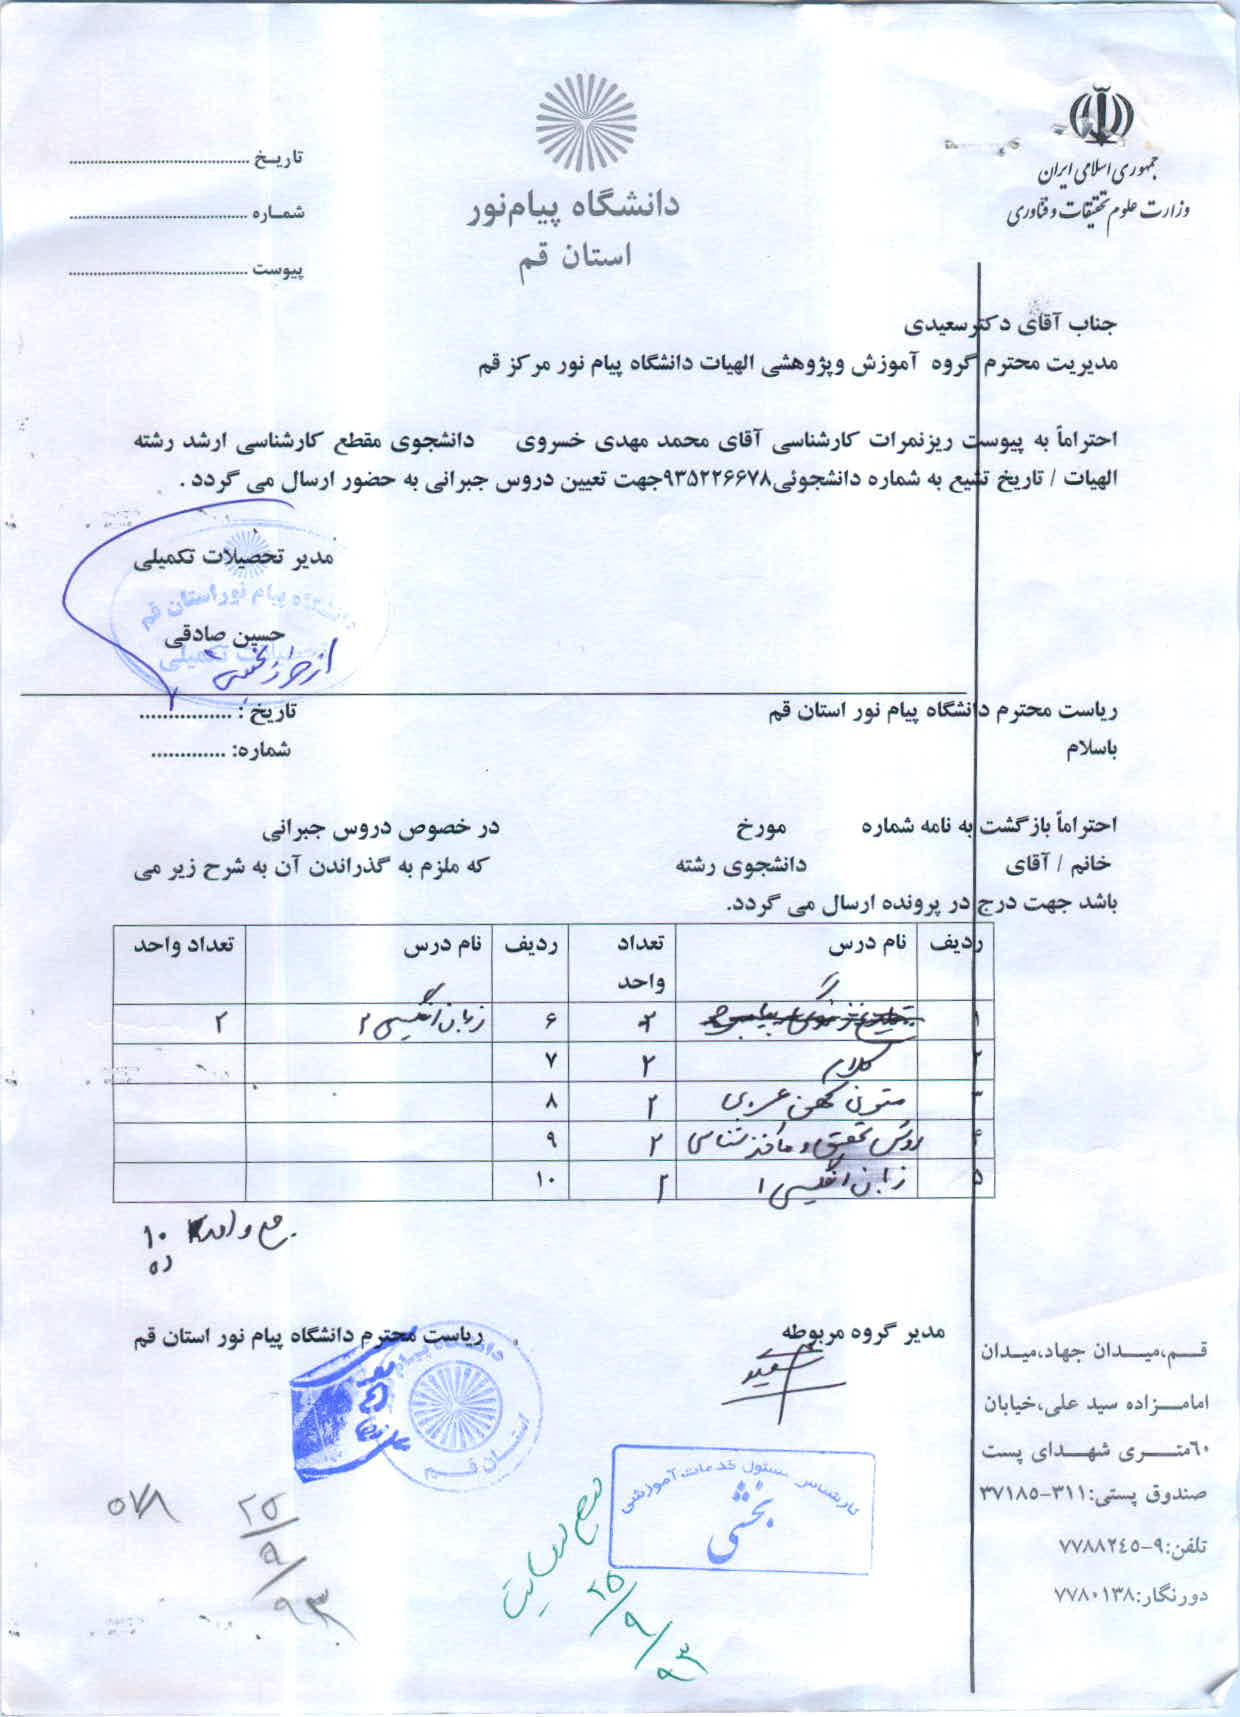 جمهوری اسلامی ایران
وزارت علوم تحقیقات و فناوری
دانشگاه پیام‌نور
استان قم
تاریـخ ................................
شمـاره ................................
پیوست ................................
جناب آقای دکترسعیدی
مدیریت محترم گروه آموزش وپژوهشی الهیات دانشگاه پیام نور مرکز قم
احتراماً به پیوست ریزنمرات کارشناسی آقای محمد مهدی خسروی دانشجوی مقطع کارشناسی ارشد رشته
الهیات / تاریخ تشیع به شماره دانشجوئی۹۳۵۲۲۶۶۷۸جهت تعیین دروس جبرانی به حضور ارسال می گردد .
مدیر تحصیلات تکمیلی
دانشگاه پیام نور استان قم
حسین صادقی
تحصیلات تکمیلی
ریاست محترم دانشگاه پیام نور استان قم
تاریخ : ................
باسلام
شماره: .............
احتراماً بازگشت به نامه شماره مورخ در خصوص دروس جبرانی
خانم / آقای دانشجوی رشته که ملزم به گذراندن آن به شرح زیر می
باشد جهت درج در پرونده ارسال می گردد.
ردیف نام درس تعداد واحد ردیف نام درس تعداد واحد
۱ ۲ ۶ زبان انگلیسی ۲ ۲
۲ کلام ۲ ۷
۳ متون کهن عربی ۲ ۸
۴ روش تحقیق و ماخذ شناسی ۲ ۹
۵ زبان انگلیسی ۱ ۲ ۱۰
جمع واحد ۱۰
ده
مدیر گروه مربوطه
ریاست محترم دانشگاه پیام نور استان قم
دانشگاه پیام
استـان قـم
کارشناس مسئول خدمات آموزشی
بخشی
۲۵/۹/۹۳
۵۷۸
۲۵/۹/۹۳
قــم،میــدان جهاد،میـدان
امامـزاده سید علی،خیابان
٦٠متــری شهـدای پست
صندوق پستی:۳۱۱-۳۷۱۸۵
تلفن:۹-۷۷۸۸۲٤٥
دورنگار:۷۷۸۰۱۳۸